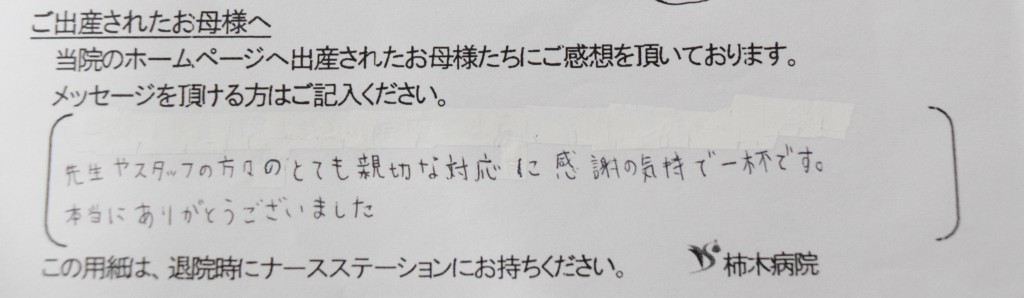 ご出産されたお母様へ
当院のホームページへ出産されたお母様たちにご感想を頂いております。
メッセージを頂ける方はご記入ください。
先生やスタッフの方々のとても親切な対応に感謝の気持で一杯です。
本当にありがとうございました
この用紙は、退院時にナースステーションにお持ちください。
柿木病院